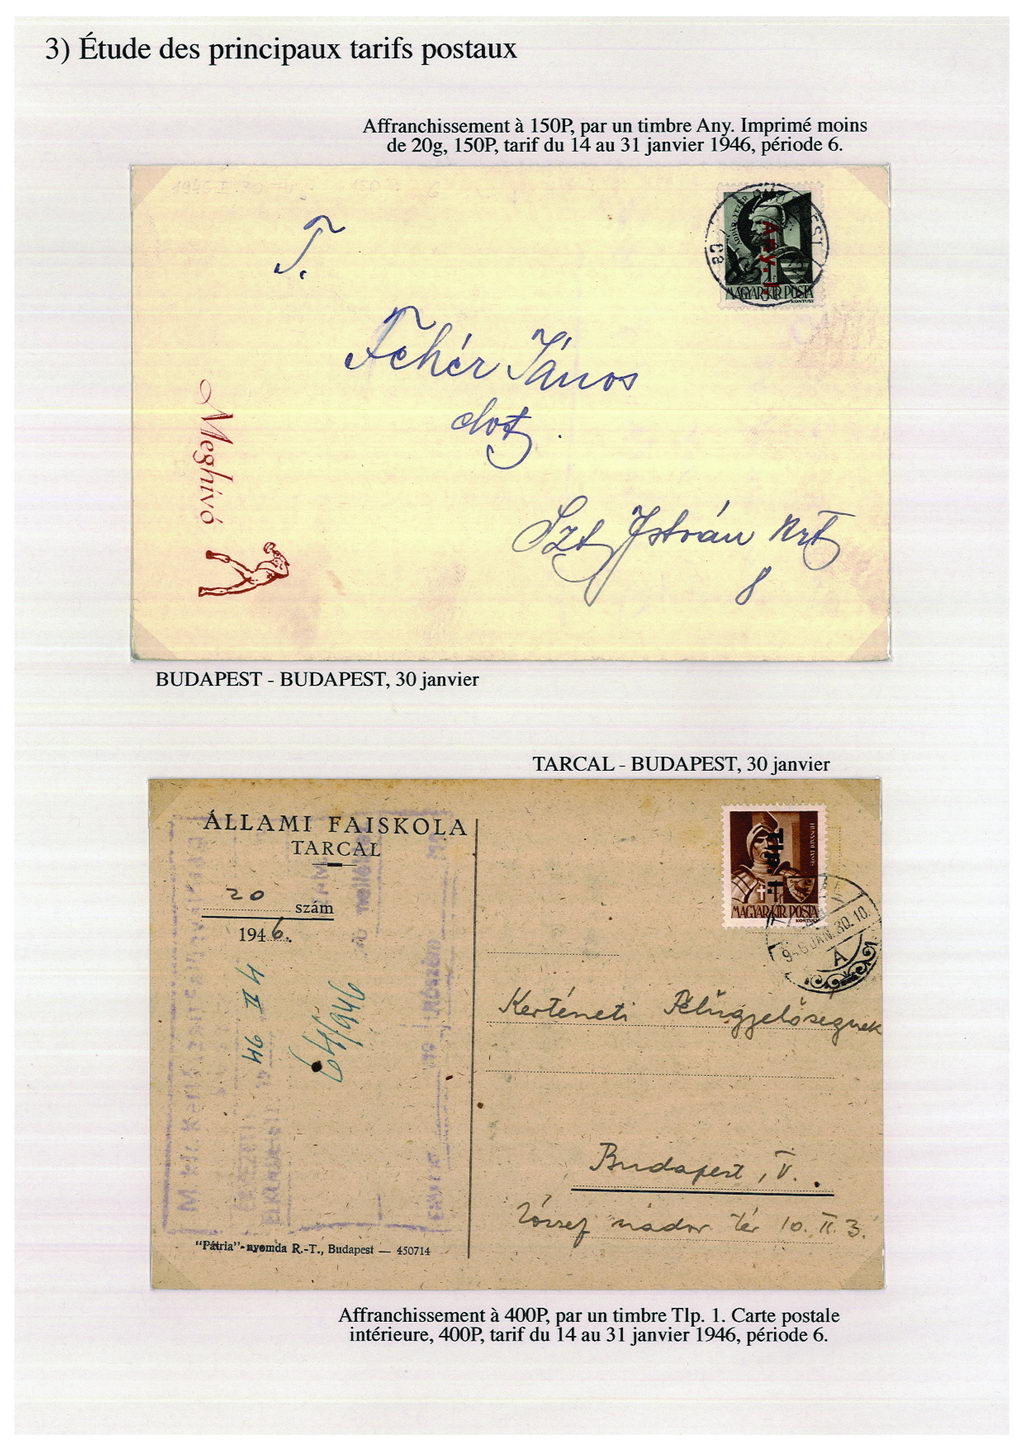 3) Étude des principaux tarifs postaux
Affranchissement à 150P, par un timbre Any. Imprimé moins
de 20g, 150P, tarif du 14 au 31 janvier 1946, période 6.
MAGYAR KIR POSTA
T.
Fehér János
Szt István krt
8
Meghívó
BUDAPEST - BUDAPEST, 30 janvier
TARCAL - BUDAPEST, 30 janvier
ÁLLAMI FAISKOLA
TARCAL
20 szám
1946.
46 II 4
64/946
Tlp. 1.
MAGYAR KIR POSTA
946 JAN. 30. 10
A
Kertészeti Felügyelőségnek
Budapest, V.
József nádor tér 10. II. 3.
"Pátria"-nyomda R.-T., Budapest — 450714
Affranchissement à 400P, par un timbre Tlp. 1. Carte postale
intérieure, 400P, tarif du 14 au 31 janvier 1946, période 6.